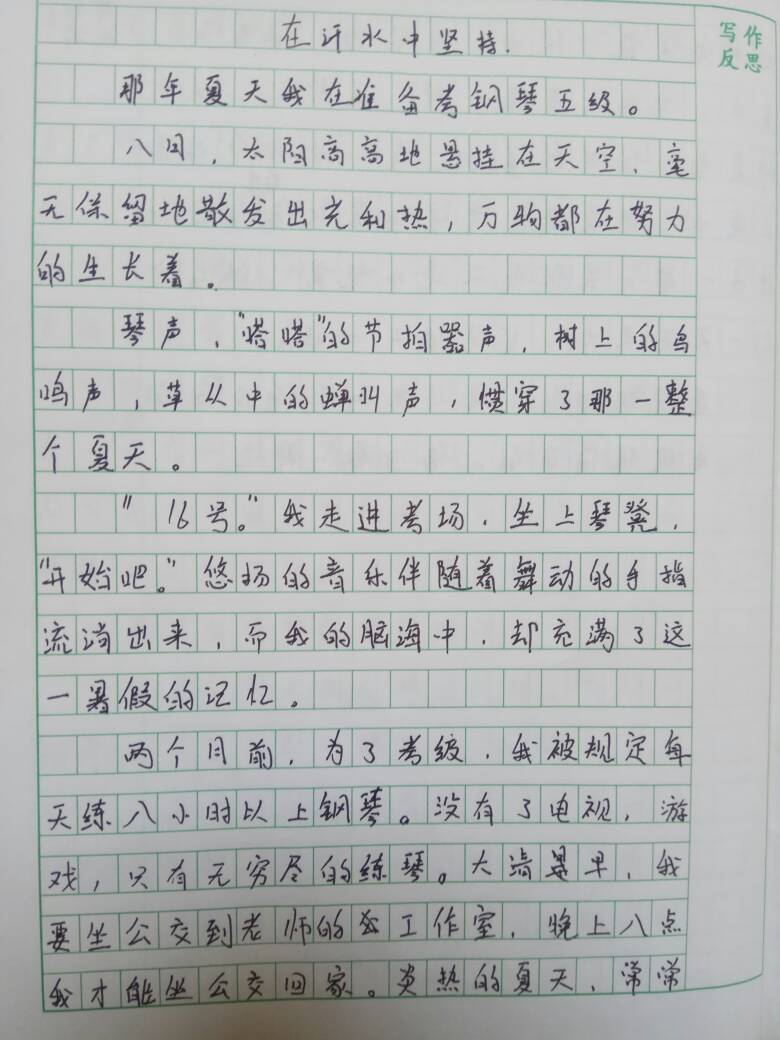 写作
反思
在汗水中坚持.
那年夏天我在准备考钢琴五级。
八月,太阳高高地悬挂在天空,毫
无保留地散发出光和热,万物都在努力
的生长着。
琴声,“嗒嗒”的节拍器声,树上的鸟
鸣声,草丛中的蝉叫声,惯穿了那一整
个夏天。
“16号。”我走进考场,坐上琴凳,
“开始吧。”悠扬的音乐伴随着舞动的手指
流淌出来,而我的脑海中,却充满了这
一暑假的记忆。
两个月前,为了考级,我被规定每
天练八小时以上钢琴。没有了电视,游
戏,只有无穷尽的练琴。大清早,我
要坐公交到老师的工作室,晚上八点
我才能坐公交回家。炎热的夏天,常常